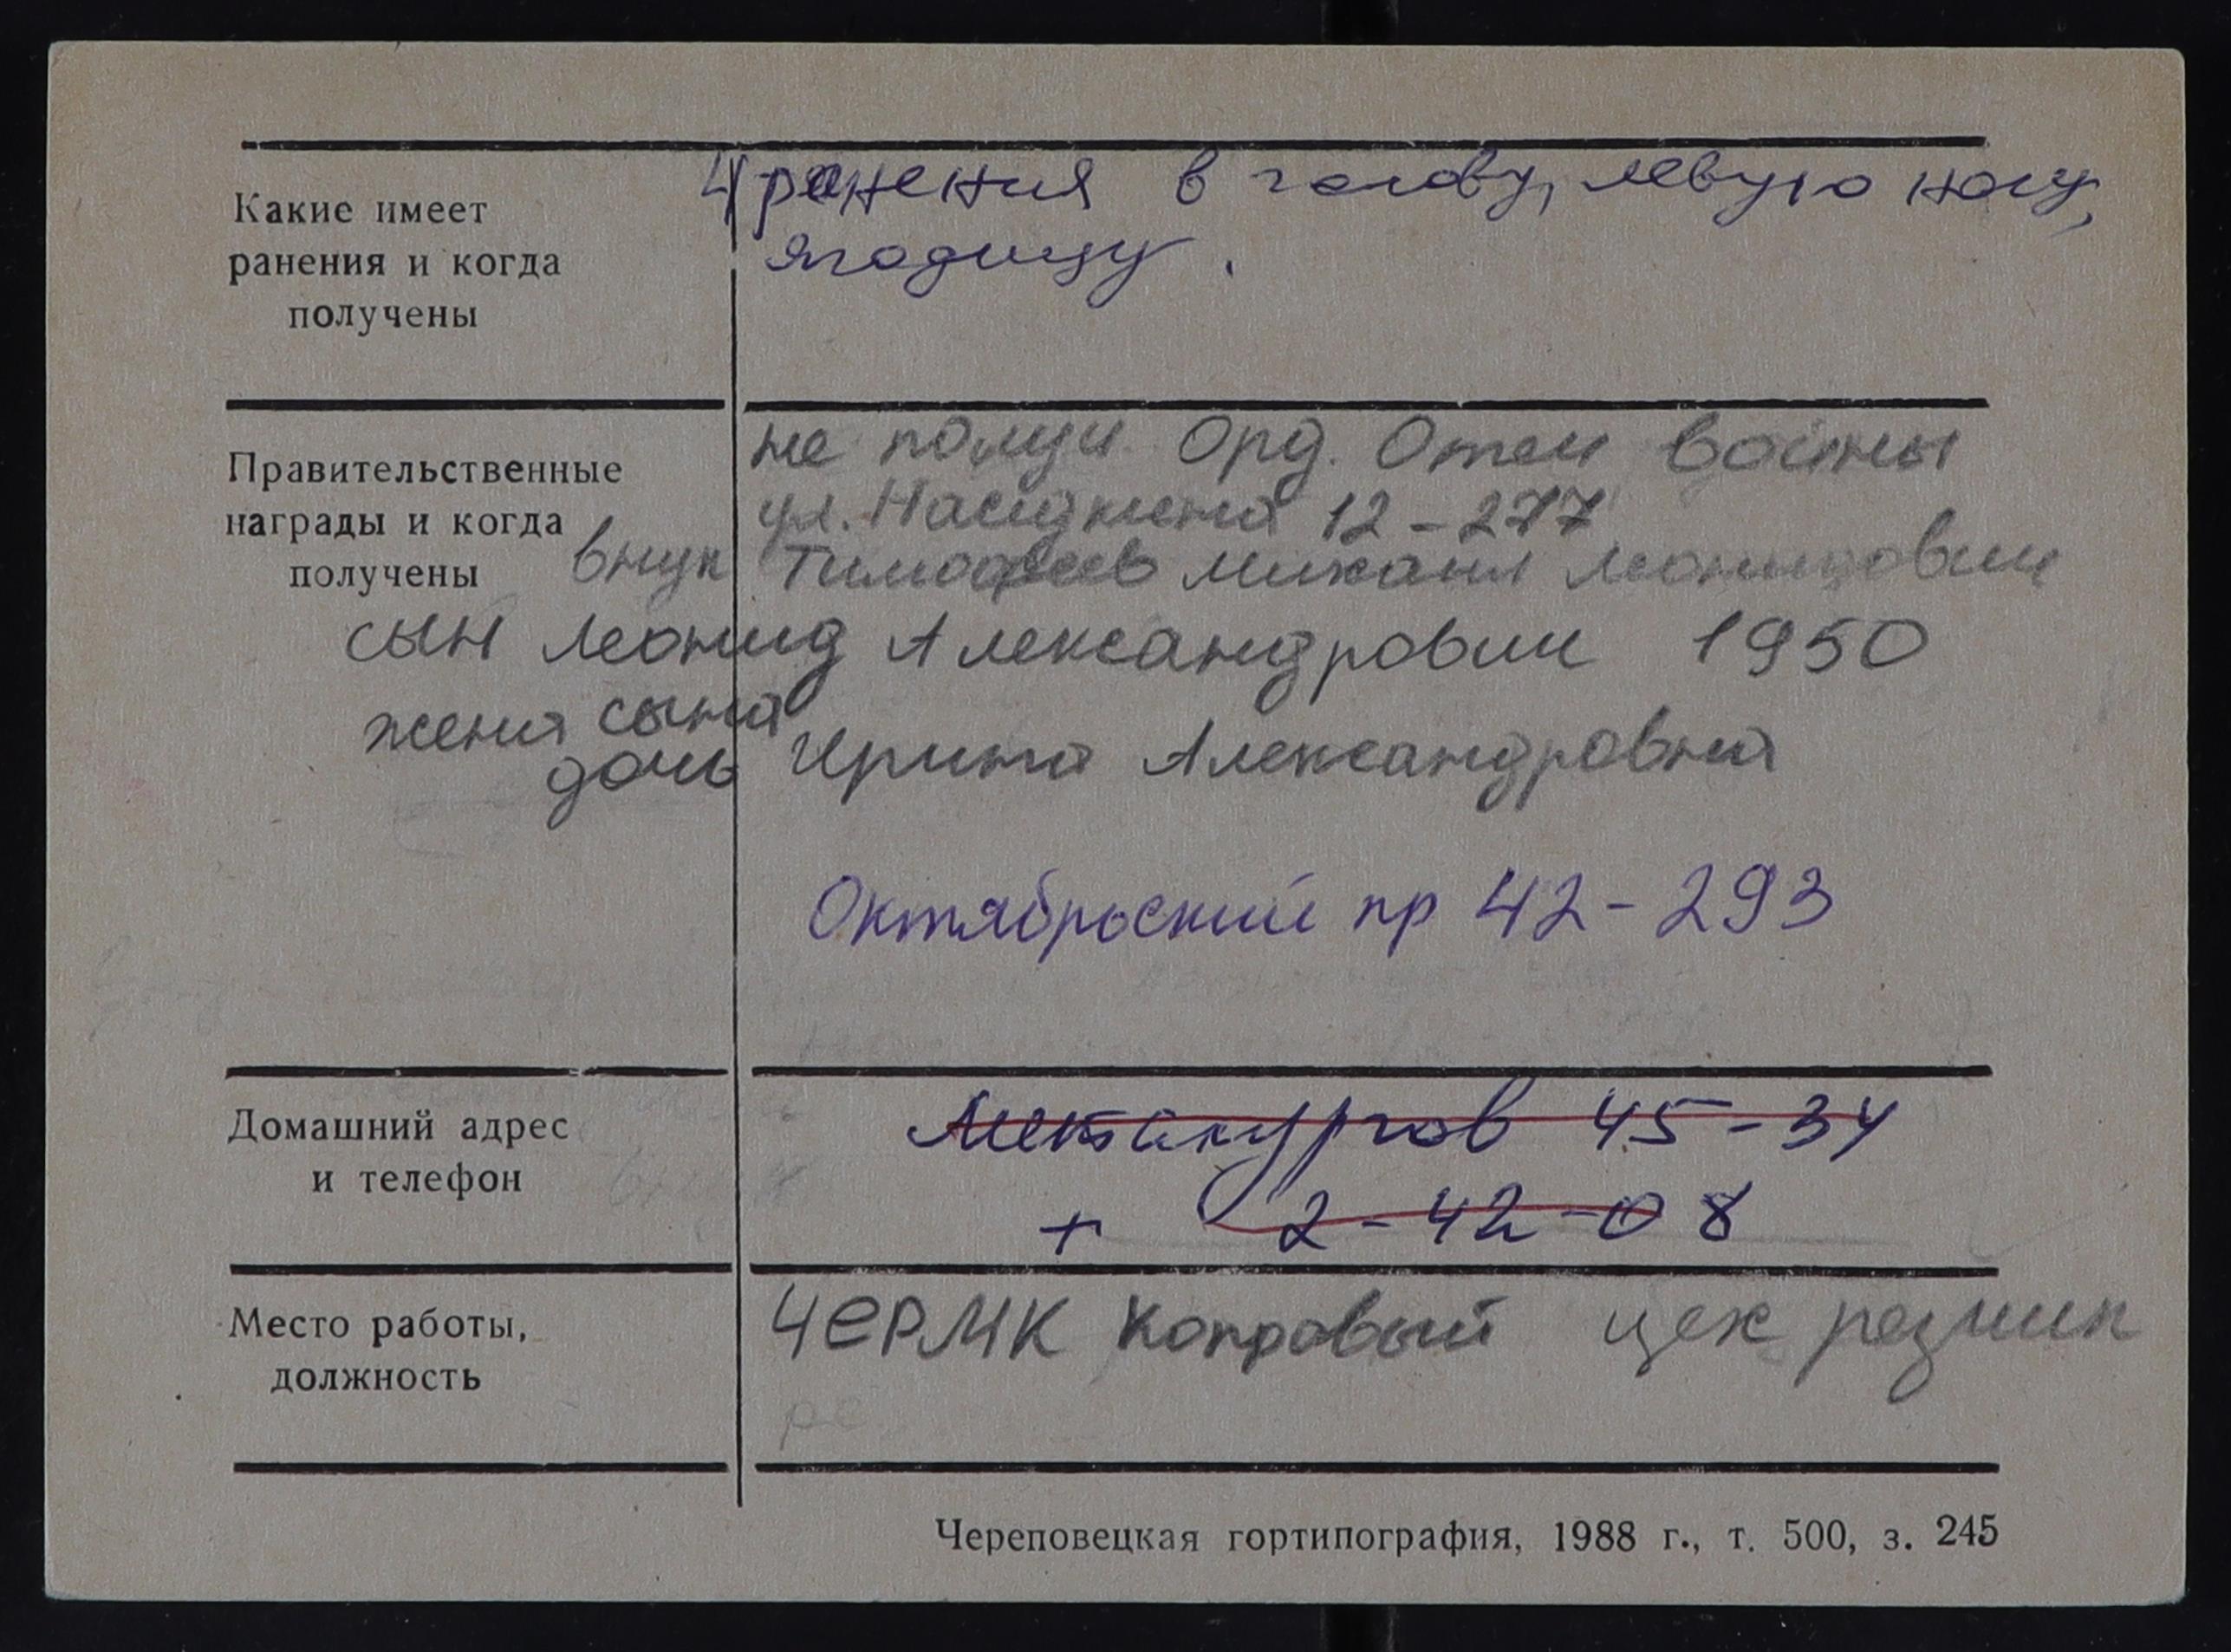 Какие имеет
ранения и когда
получены
4 ранения в голову, левую ногу,
ягодицу.
Правительственные
награды и когда
получены
не получ. Орд. Отеч войны
ул. Наседкина 12-277
внук Тимофеев Михаил Леонидович
сын Леонид Александрович 1950
жена сына
дочь Ирина Александровна
Октябрьский пр 42-293
Домашний адрес
и телефон
Металлургов 45-34
+ 2-42-08
Место работы,
должность
ЧЕРМК Копровый цех резчик
ре
Череповецкая гортипография, 1988 г., т. 500, з. 245